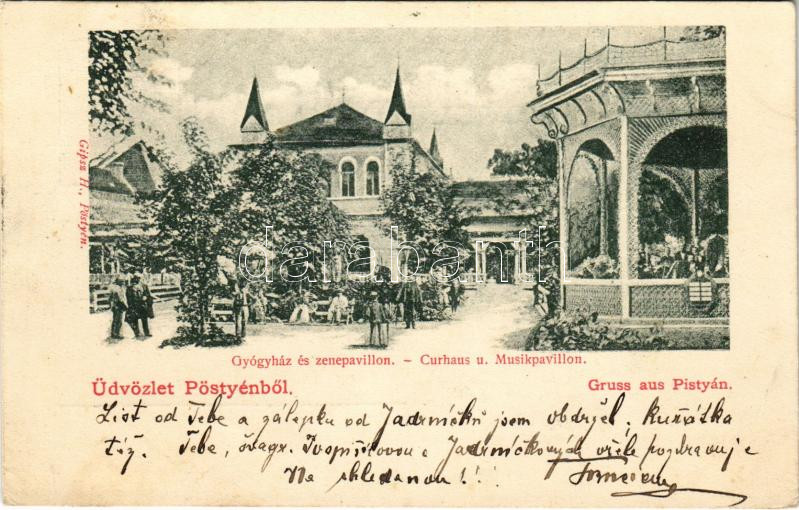 Gipsz H., Pöstyén.
darabanth
Gyógyház és zenepavillon. – Curhaus u. Musikpavillon.
Üdvözlet Pöstyénből.
Gruss aus Pistyán.
List od Tebe a zálepku od Jadrníčků jsem obdržel. Kuřátka
též. Tebe, švagr. a Jadrníčkových vřele pozdravuje
Na shledanou!!!